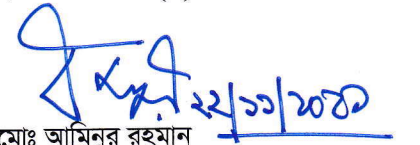 ২২/১১/২০২১
মোঃ আমিনুর রহমান